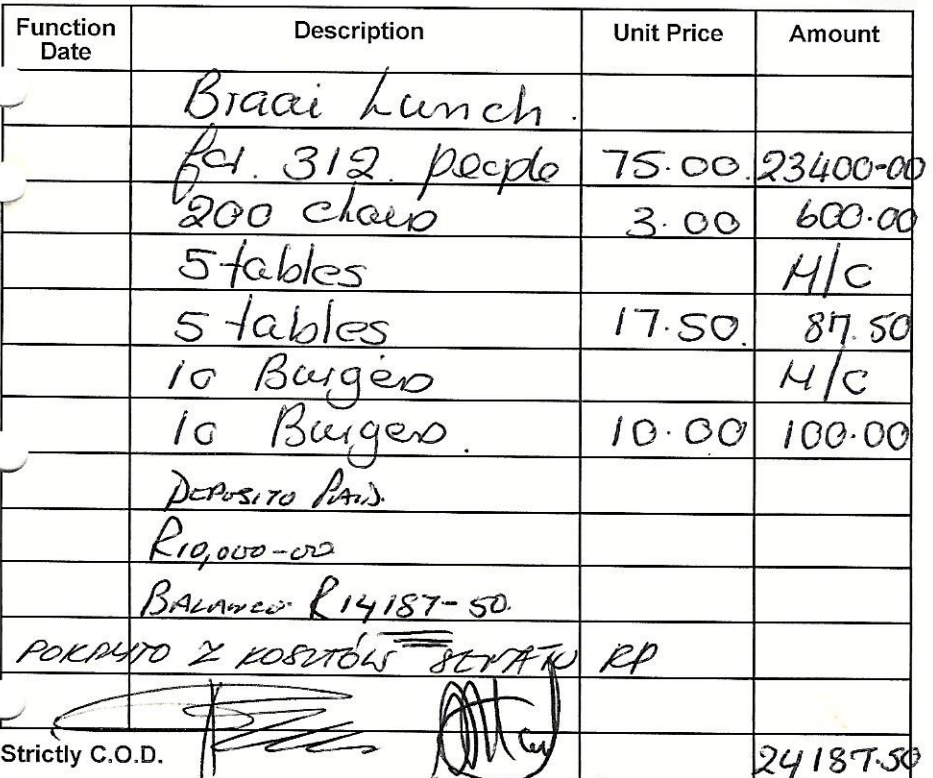 Function Date Description Unit Price Amount
Braai Lunch.
for. 312. people 75.00. 23400-00
200 chairs 3.00 600.00
5 tables M/C
5 tables 17.50. 87.50
10 Burgers M/C
10 Burgers. 10.00 100.00
DEPOSITO PAID.
R10,000-00
BALANCE R14187-50.
POKRYTO Z KOSZTÓW SENATU RP
Strictly C.O.D. 24187.50